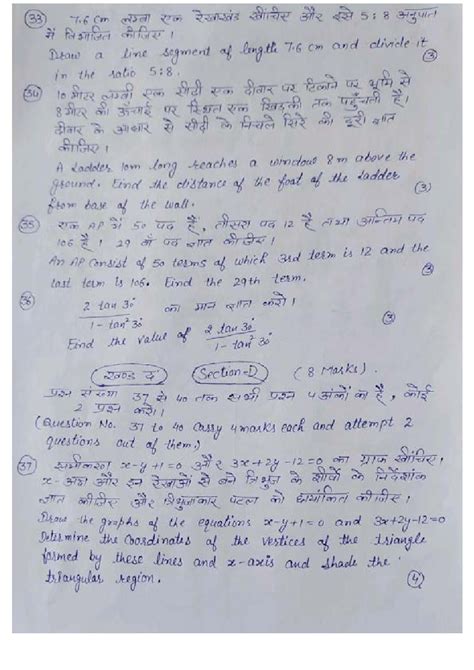 (33) 7.6 cm लम्बा एक रेखाखंड खींचिए और इसे 5:8 अनुपात
में विभाजित कीजिए।
Draw a line segment of length 7.6 cm and divide it
in the ratio 5:8. (3)
(34) 10 मीटर लम्बी एक सीढ़ी एक दीवार पर टिकाने पर भूमि से
8 मीटर की ऊँचाई पर स्थित एक खिड़की तक पहुँचती है।
दीवार के आधार से सीढ़ी के निचले सिरे की दूरी ज्ञात
कीजिए।
A ladder 10m long reaches a window 8m above the
ground. Find the distance of the foot of the ladder
from base of the wall. (3)
(35) एक AP में 50 पद हैं, तीसरा पद 12 है तथा अन्तिम पद
106 है। 29 वें पद ज्ञात कीजिए।
An AP consist of 50 terms of which 3rd term is 12 and the
last term is 106. Find the 29th term. (3)
(36) 2 tan 30° / 1 - tan² 30° का मान ज्ञात करो।
(3)
Find the value of 2 tan 30° / 1 - tan² 30°
खण्ड द Section-D (8 Marks).
प्रश्न संख्या 37 से 40 तक सभी प्रश्न 4 अंकों का है, कोई
2 प्रश्न करो।
(Question No. 37 to 40 carry 4 marks each and attempt 2
questions out of them.)
(37) समीकरण x-y+1=0 और 3x+2y-12=0 का ग्राफ खींचिए।
x-अक्ष और इन रेखाओं से बने त्रिभुज के शीर्षों के निर्देशांक
ज्ञात कीजिए और त्रिभुजाकार पटल को छायांकित कीजिए।
Draw the graphs of the equations x-y+1=0 and 3x+2y-12=0
Determine the coordinates of the vertices of the triangle
formed by these lines and x-axis and shade the
triangular region. (4)